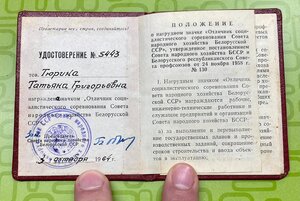 УДОСТОВЕРЕНИЕ № 5443
тов. Тюрина
Татьяна Григорьевна
награжден значком «Отличник соци-
алистического соревнования Совета
народного хозяйства Белорусской
ССР».
Председатель
Совета народного хозяйства
БССР
3 октября 1964 г.
ПОЛОЖЕНИЕ
о нагрудном значке «Отличник социа-
листического соревнования Совета
народного хозяйства Белорусской
ССР», утвержденное постановлением
Совета народного хозяйства БССР и
Белорусского республиканского Сове-
та профсоюзов от 24 ноября
№ 130
1. Нагрудным значком «Отличник
социалистического соревнования Сове-
та народного хозяйства Белорусской
ССР» награждаются рабочие,
инженерно-технические работники и
служащие предприятий и организаций
Совета народного хозяйства БССР:
а) за выполнение и перевыполнение
государственных планов и производ-
ственных заданий,
строительства и ввода объек-
тов в эксплуатацию;